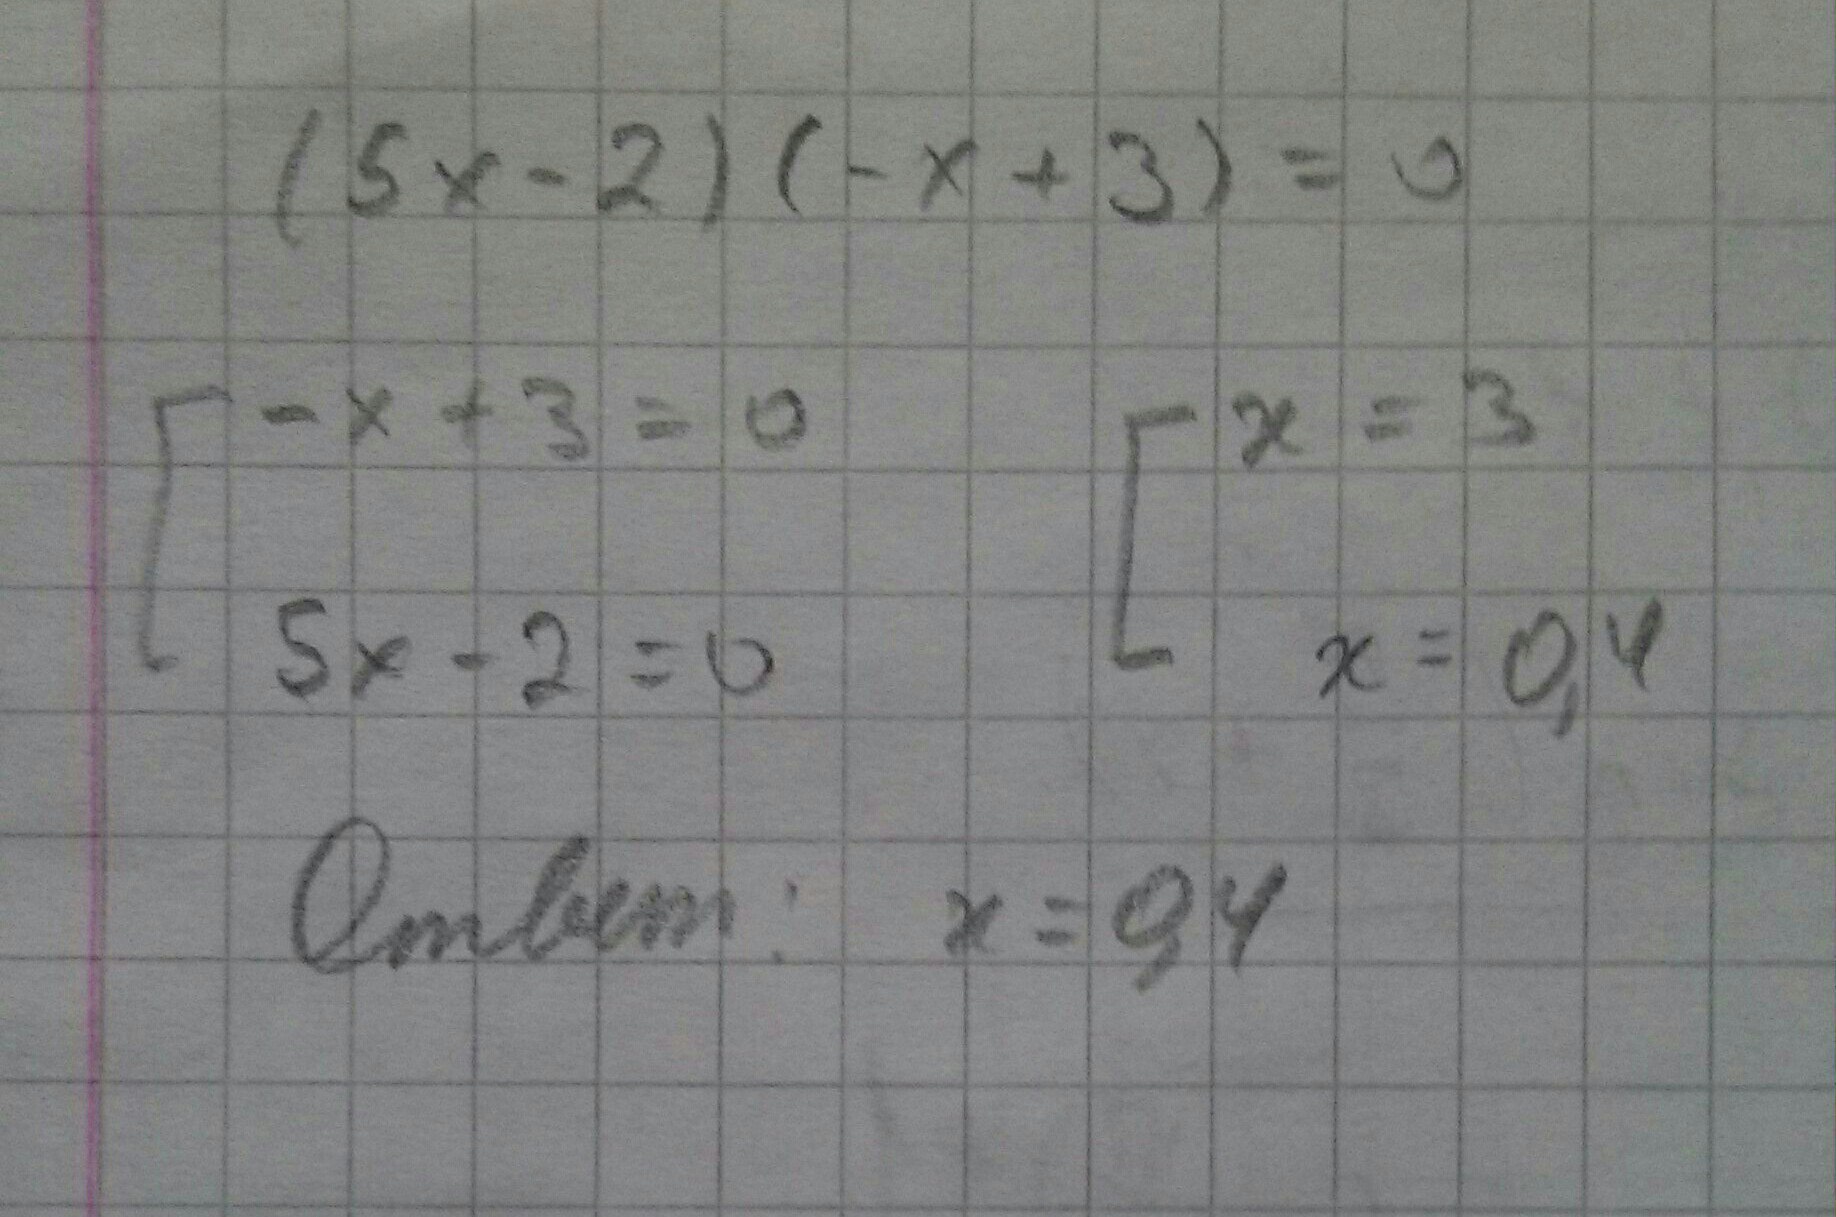 (5x-2)(-x+3)=0
[-x+3=0 [x=3
5x-2=0 x=0,4
Ответ: x=0,4